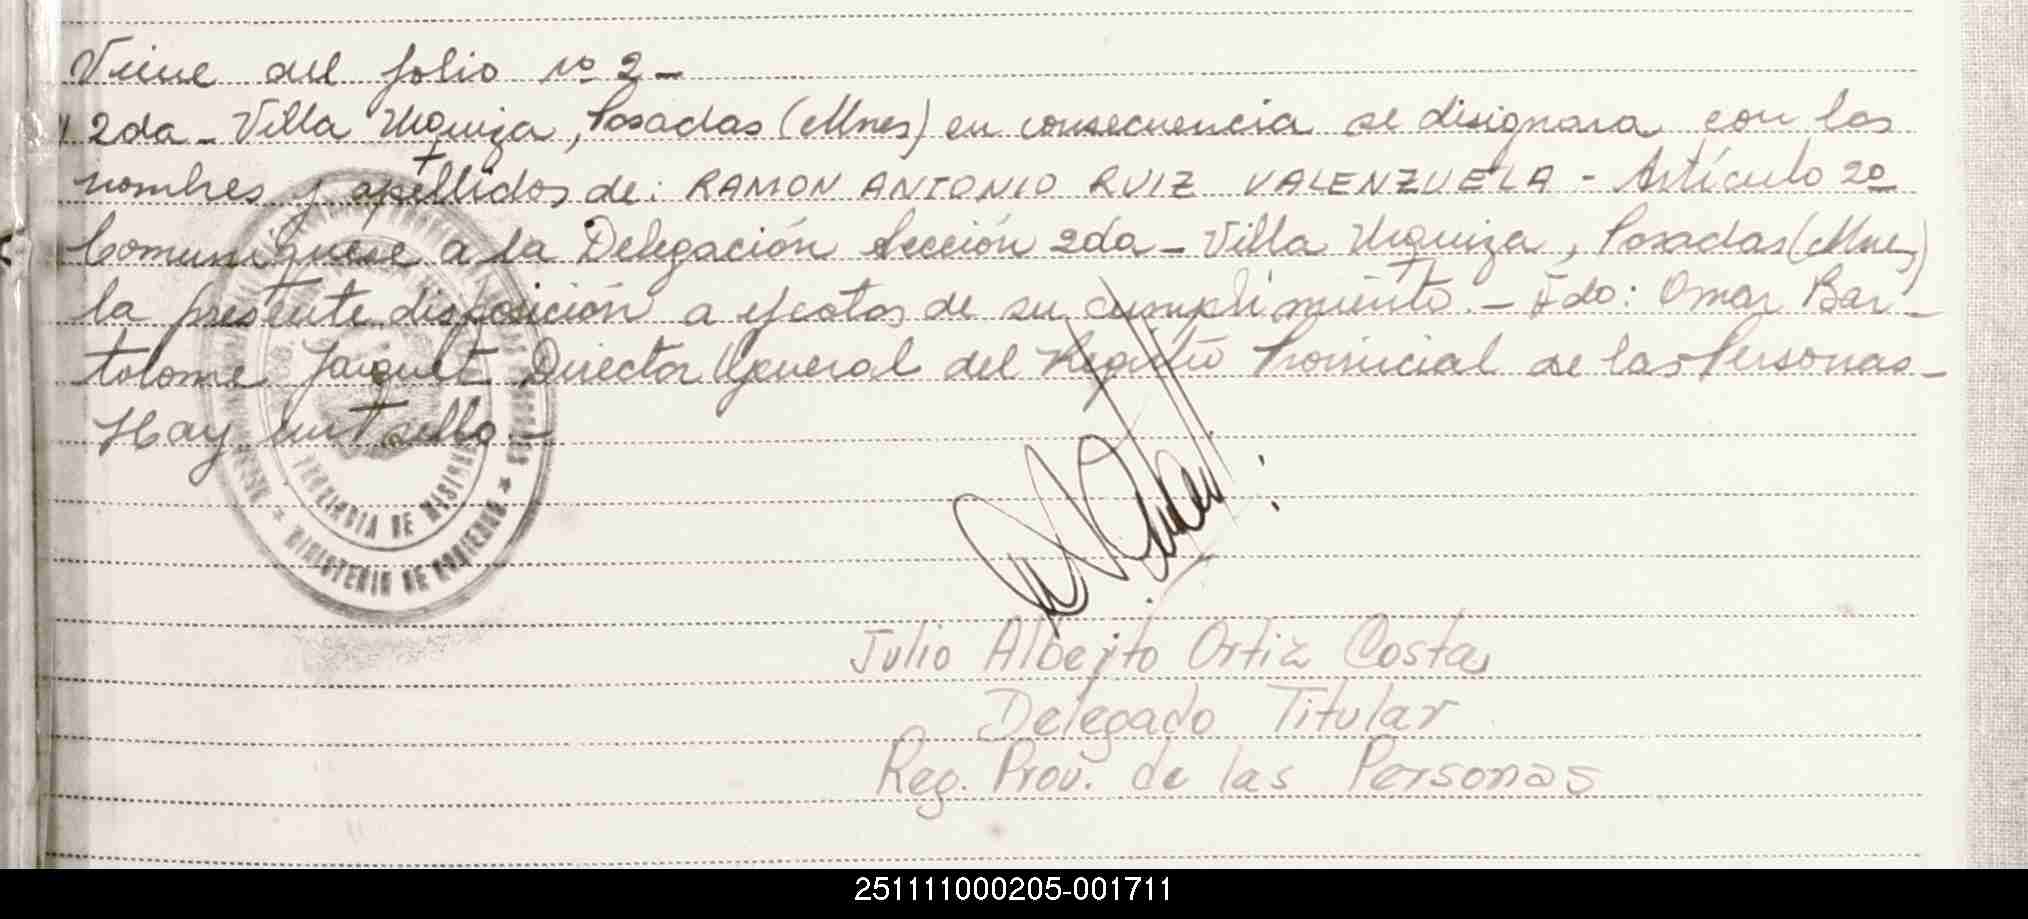 Viene del folio nº 2-
2da- Villa Urquiza, Posadas (Mnes) en consecuencia se disignara con los
nombres y apellidos de: RAMON ANTONIO RUIZ VALENZUELA - Artículo 2º
Comuníquese a la Delegación Sección 2da- Villa Urquiza, Posadas (Mnes)
la presente disposición a efectos de su cumplimiento.- Fdo: Omar Bar-
tolome Jaquet Director General del Registro Provincial de las Personas-
Hay un sello-
PROVINCIA DE MISIONES
* MINISTERIO DE GOBIERNO *
Julio Alberto Ortiz Costa
Delegado Titular
Reg. Prov. de las Personas
251111000205-001711